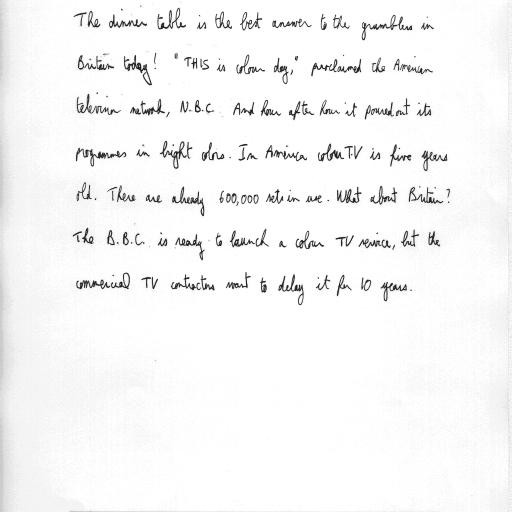 The dinner table is the best answer to the grumblers in
Britain today! "THIS is colour day," proclaimed the American
television network, N.B.C. And hour after hour it poured out its
programmes in bright colors. In America colour TV is five years
old. There are already 600,000 sets in use. What about Britain?
The B.B.C. is ready to launch a colour TV service, but the
commercial TV contractors want to delay it for 10 years.